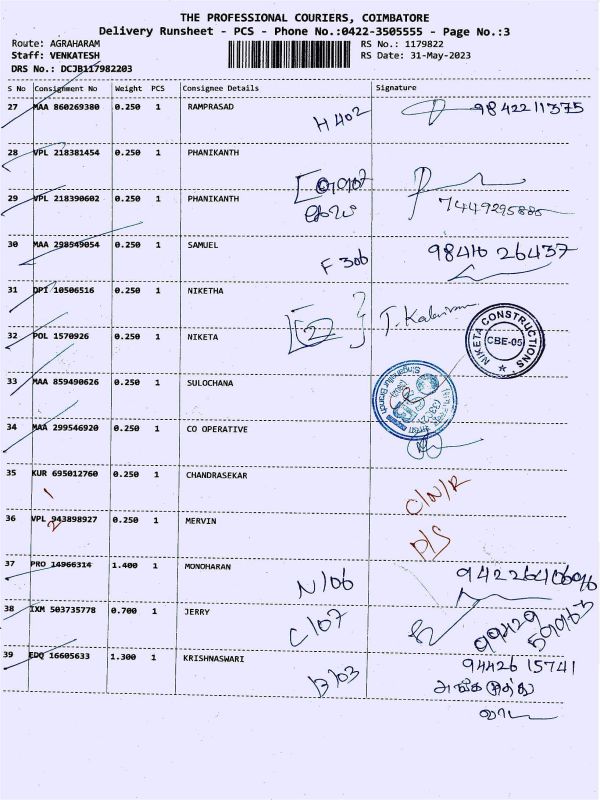 THE PROFESSIONAL COURIERS, COIMBATORE
Delivery Runsheet - PCS - Phone No.:0422-3505555 - Page No.:3
Route: AGRAHARAM RS No.: 1179822
Staff: VENKATESH RS Date: 31-May-2023
DRS No.: DCJB117982203
S No Consignment No Weight PCS Consignee Details Signature
27 MAA 860269380 0.250 1 RAMPRASAD H 402 9842211375
28 VPL 218381454 0.250 1 PHANIKANTH
29 VPL 218390602 0.250 1 PHANIKANTH 7449295886
30 MAA 298549054 0.250 1 SAMUEL F 306 98410 26437
31 DPI 10506516 0.250 1 NIKETHA
32 POL 1570926 0.250 1 NIKETA [2] NIKETA CONSTRUCTIONS CBE-05
33 MAA 859490626 0.250 1 SULOCHANA
34 MAA 299546920 0.250 1 CO OPERATIVE
35 KUR 695012760 0.250 1 CHANDRASEKAR C/N/R
1
36 VPL 943898927 0.250 1 MERVIN D/S
2
37 PRO 14966314 1.400 1 MONOHARAN N/06
38 IXM 503735778 0.700 1 JERRY C/07
39 EDQ 16605633 1.300 1 KRISHNASWARI B/03 94426 15741